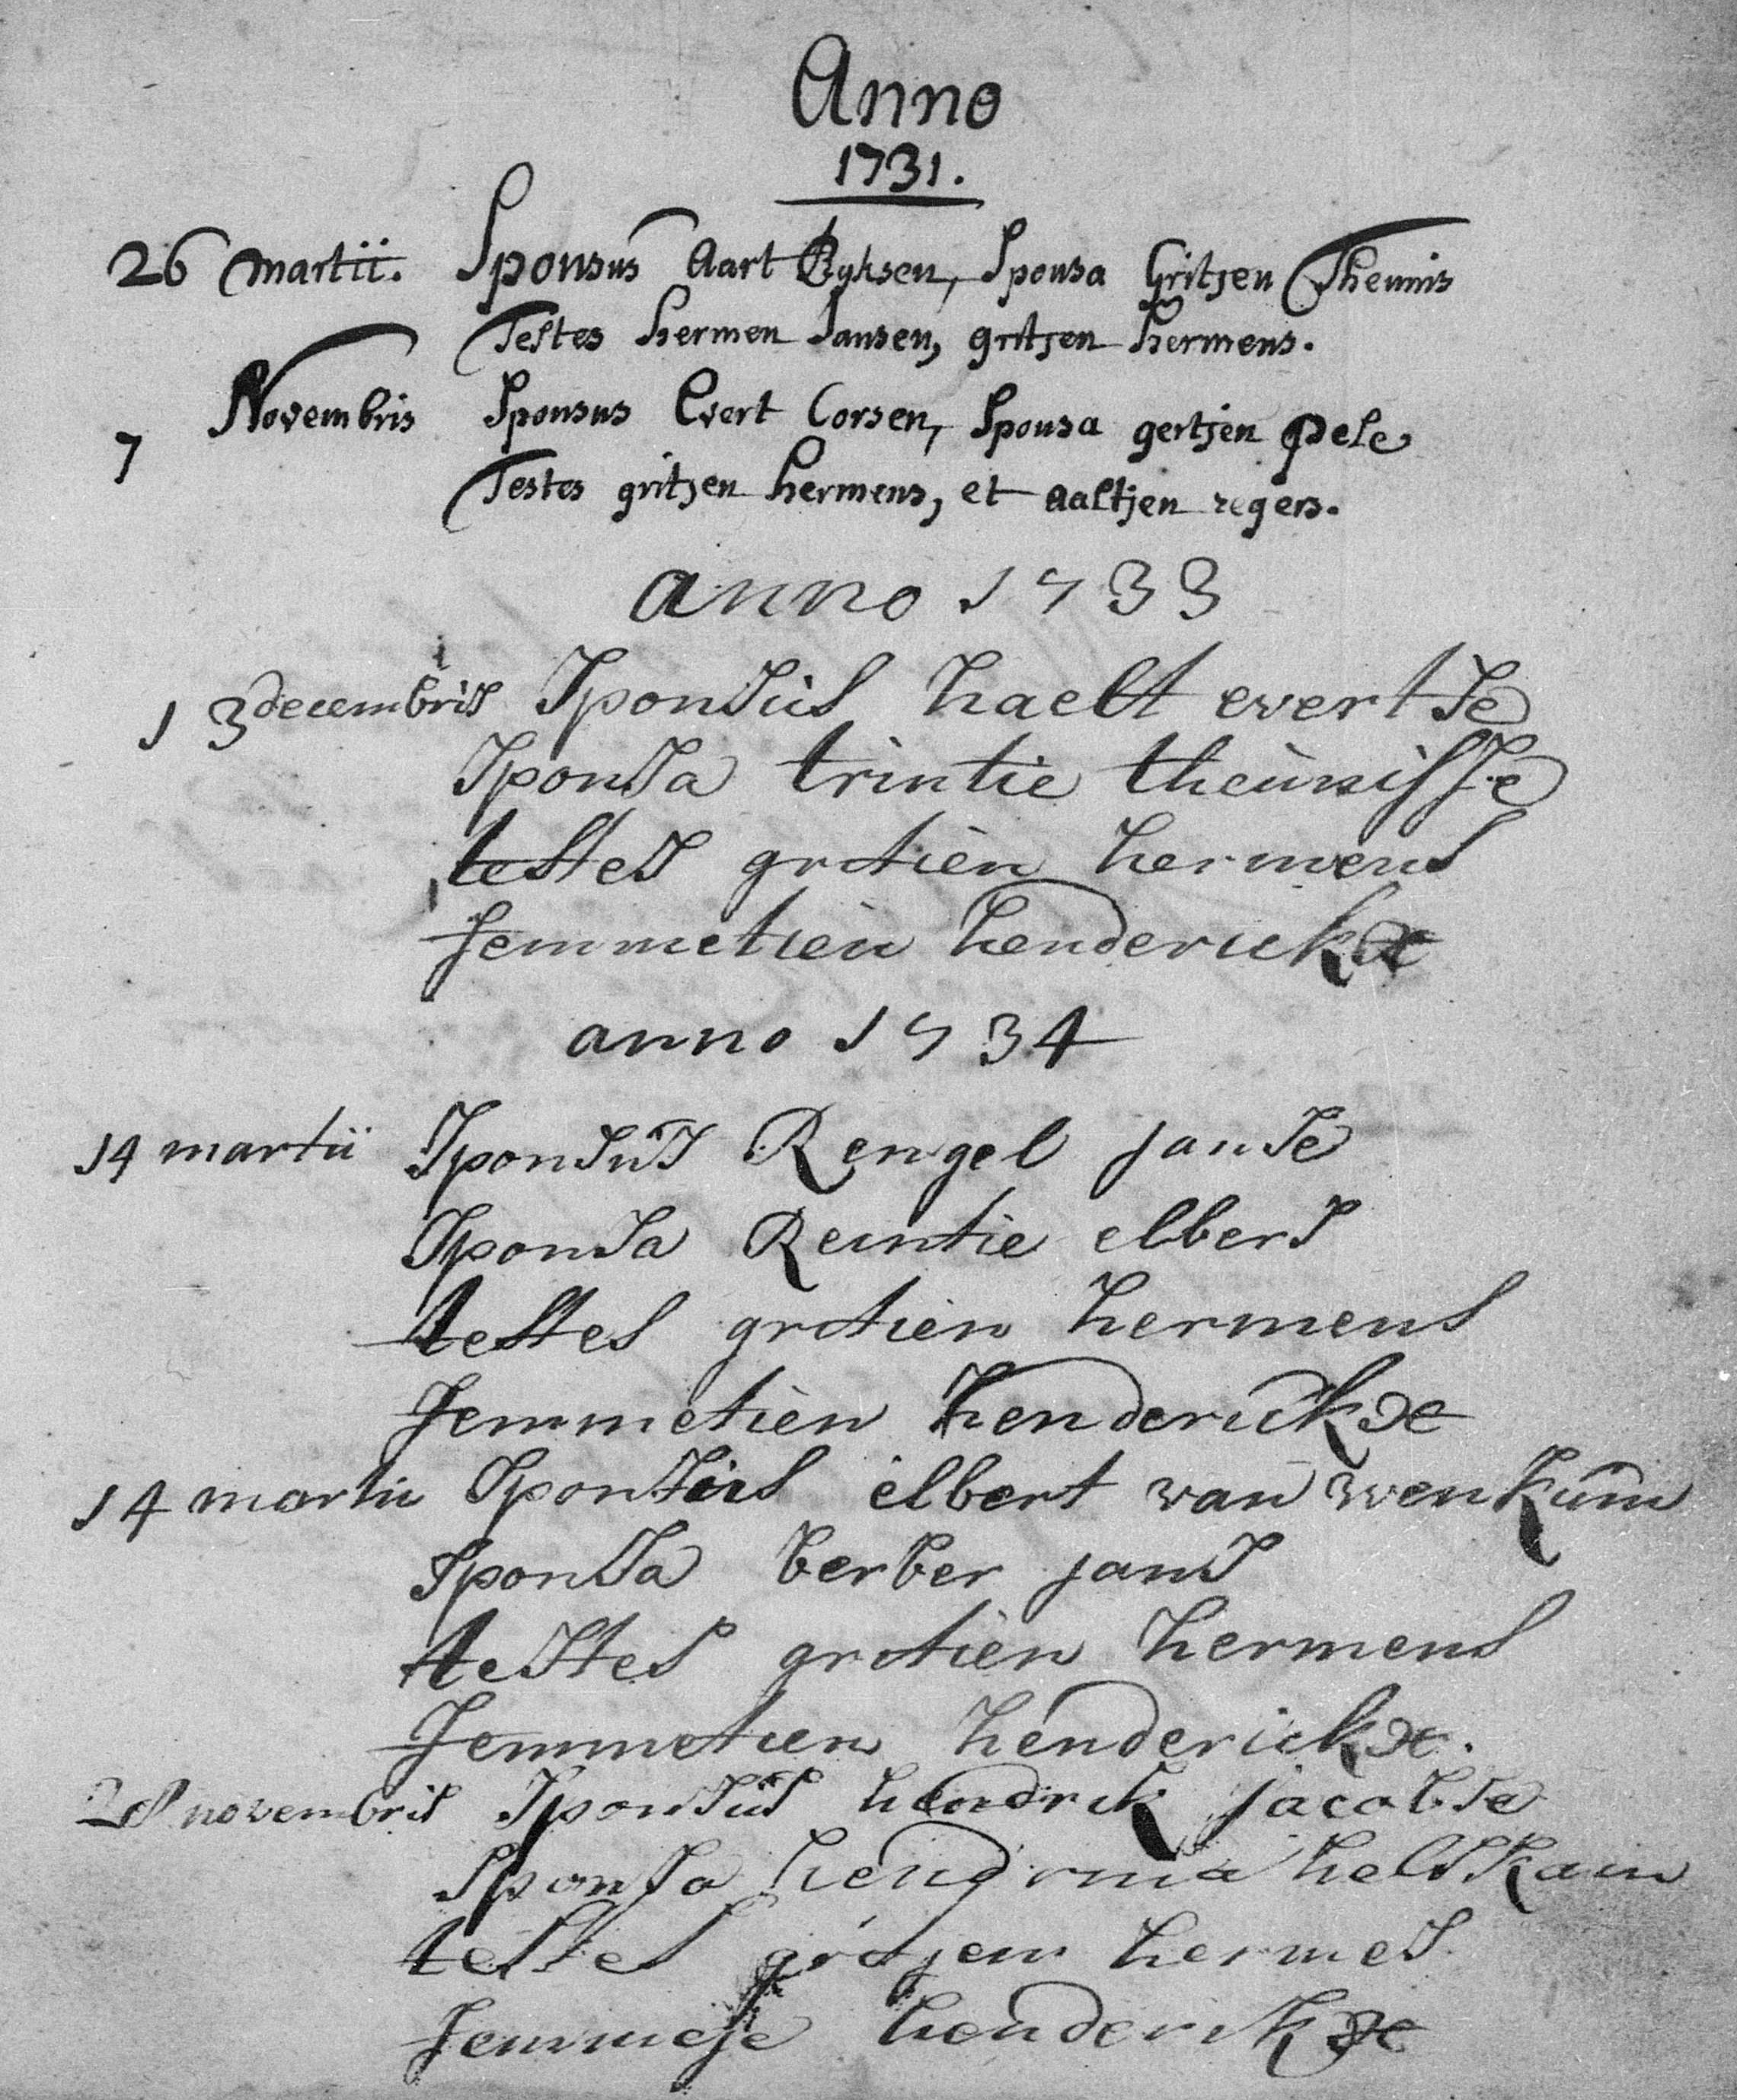 Anno
1731.
26 Martii. Sponsus Aart Ryksen, Sponsa Gritjen Theunis
Testes Hermen Jansen, gritjen Hermens.
7 Novembris Sponsus Evert Corsen, Sponsa gertjen Pele
Testes gritjen Hermens, et aaltjen regers.
anno 1733
13 decembris Sponsus haelt evertse
Sponsa trintie theunisse
testes grtien hermens
Jemmetien henderickx
anno 1734
14 martii Sponsus Rengel janse
Sponsa Reintie elbers
testes grtien hermens
Jemmetien henderickx
14 martii Sponsus elbert van wenkum
Sponsa berber jans
testes grtien hermens
Jemmetien henderickx.
28 novembris Sponsus hendrik jacobse
Sponsa hendrina helskam
testes grtjen hermes
Jemmetje henderikx